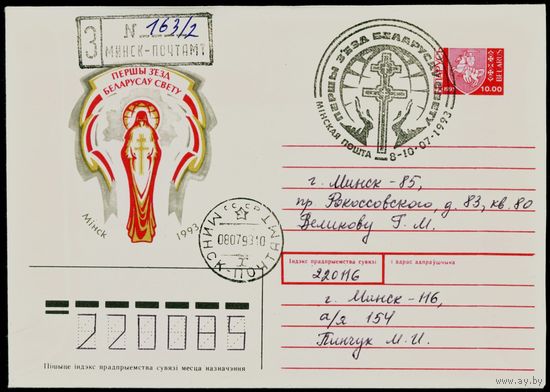 З
N 163/2
МИНСК-ПОЧТАМТ
ПЕРШЫ З'ЕЗД
БЕЛАРУСАЎ СВЕТУ
Мінск 1993
ПЕРШЫ З'ЕЗД БЕЛАРУСАЎ СВЕТУ
МІНСКАЯ ПОШТА 8-10·07·1993
BELARUS
10.00
С С С Р
МИНСК-ПОЧТАМТ
08079310
г. Минск - 85,
пр. Рокоссовского д. 83, кв. 80
Великову Г. М.
Індэкс прадпрыемства сувязі і адрас адпраўшчыка
220116
г. Минск - 116,
а/я 154
Пинчук М. И.
220085
Пішыце індэкс прадпрыемства сувязі месца назначэння
www.ay.by